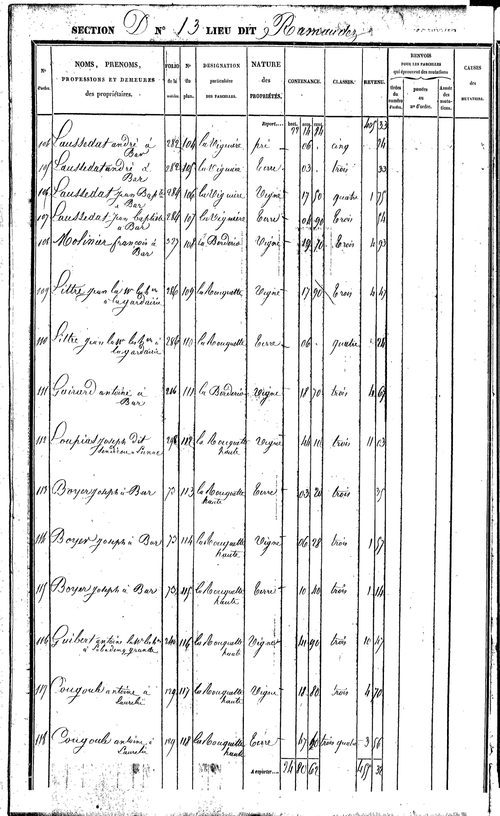 SECTION D N° 13 LIEU DIT Ramaudez
Nos d'ordre.
NOMS, PRENOMS,
PROFESSIONS ET DEMEURES
des propriétaires.
FOLIO de la
N° du plan.
DESIGNATION
particulière
DES PARCELLES.
NATURE
des
PROPRIÉTÉS.
CONTENANCE.
CLASSES.
REVENU.
RENVOIS
POUR LES PARCELLES
qui éprouvent des mutations
tirées du numéro d'ordre.
portées au n° d'ordre.
Année des mutations.
CAUSES
DES
MUTATIONS.
Report
hect. ares cent.
14 84 33
104 Laussedat andré à Bar 282 104 la Viguière pré 06 cinq 24
105 Laussedat andré à Bar 282 105 la Viguière Terre 03 trois 33
106 Laussedat jean Bapte à Bar 284 106 la Viguière Vigne 17 50 quatre 1 75
107 Laussedat jean baptiste à Bar 284 107 la Viguière Terre 04 90 trois 54
108 Molinier françois à Bar 327 108 la Borderie Vigne 19 70 trois 4 93
109 à la gardairie 286 109 la Mouquette Vigne 17 90 trois 4 47
110 à la gardairie 286 110 la Mouquette Terre 06 quatre 24
111 Guirard antoine à Bar 216 111 la Borderie Vigne 18 70 trois 4 67
112 Loupias joseph dit 298 112 la Mouquette haute Vigne 44 10 trois 11 03
113 Boyer joseph à Bar 73 113 la Mouquette haute Terre 03 20 trois 35
114 Boyer joseph à Bar 73 114 la Mouquette haute Vigne 06 28 trois 1 57
115 Boyer joseph à Bar 73 115 la Mouquette haute Terre 10 40 trois 1 14
116 Guibert antoine 116 la Mouquette haute Vigne 41 90 trois 10 47
117 Cougoule antoine à 129 117 la Mouquette haute Vigne 18 80 trois 4 70
118 Cougoule antoine à 129 118 la Mouquette haute Terre 47 trois quatre 3 56
A reporter 24 80 62